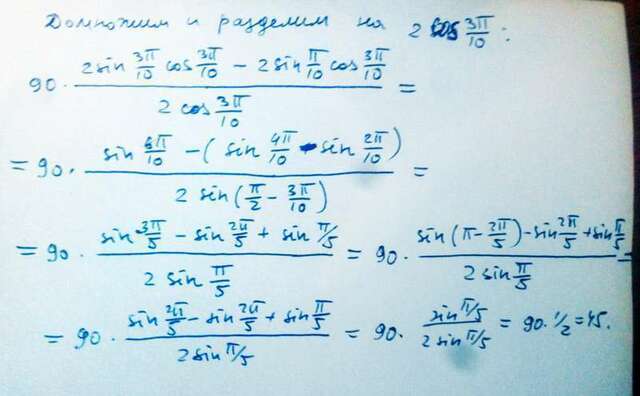 Домножим и разделим на 2 cos 3π/10 :
90 · (2 sin 3π/10 cos 3π/10 − 2 sin π/10 cos 3π/10) / (2 cos 3π/10) =
= 90 · (sin 6π/10 − (sin 4π/10 − sin 2π/10)) / (2 sin (π/2 − 3π/10)) =
= 90 · (sin 3π/5 − sin 2π/5 + sin π/5) / (2 sin π/5) = 90 · (sin (π − 2π/5) − sin 2π/5 + sin π/5) / (2 sin π/5) =
= 90 · (sin 2π/5 − sin 2π/5 + sin π/5) / (2 sin π/5) = 90 · (sin π/5) / (2 sin π/5) = 90 · 1/2 = 45.